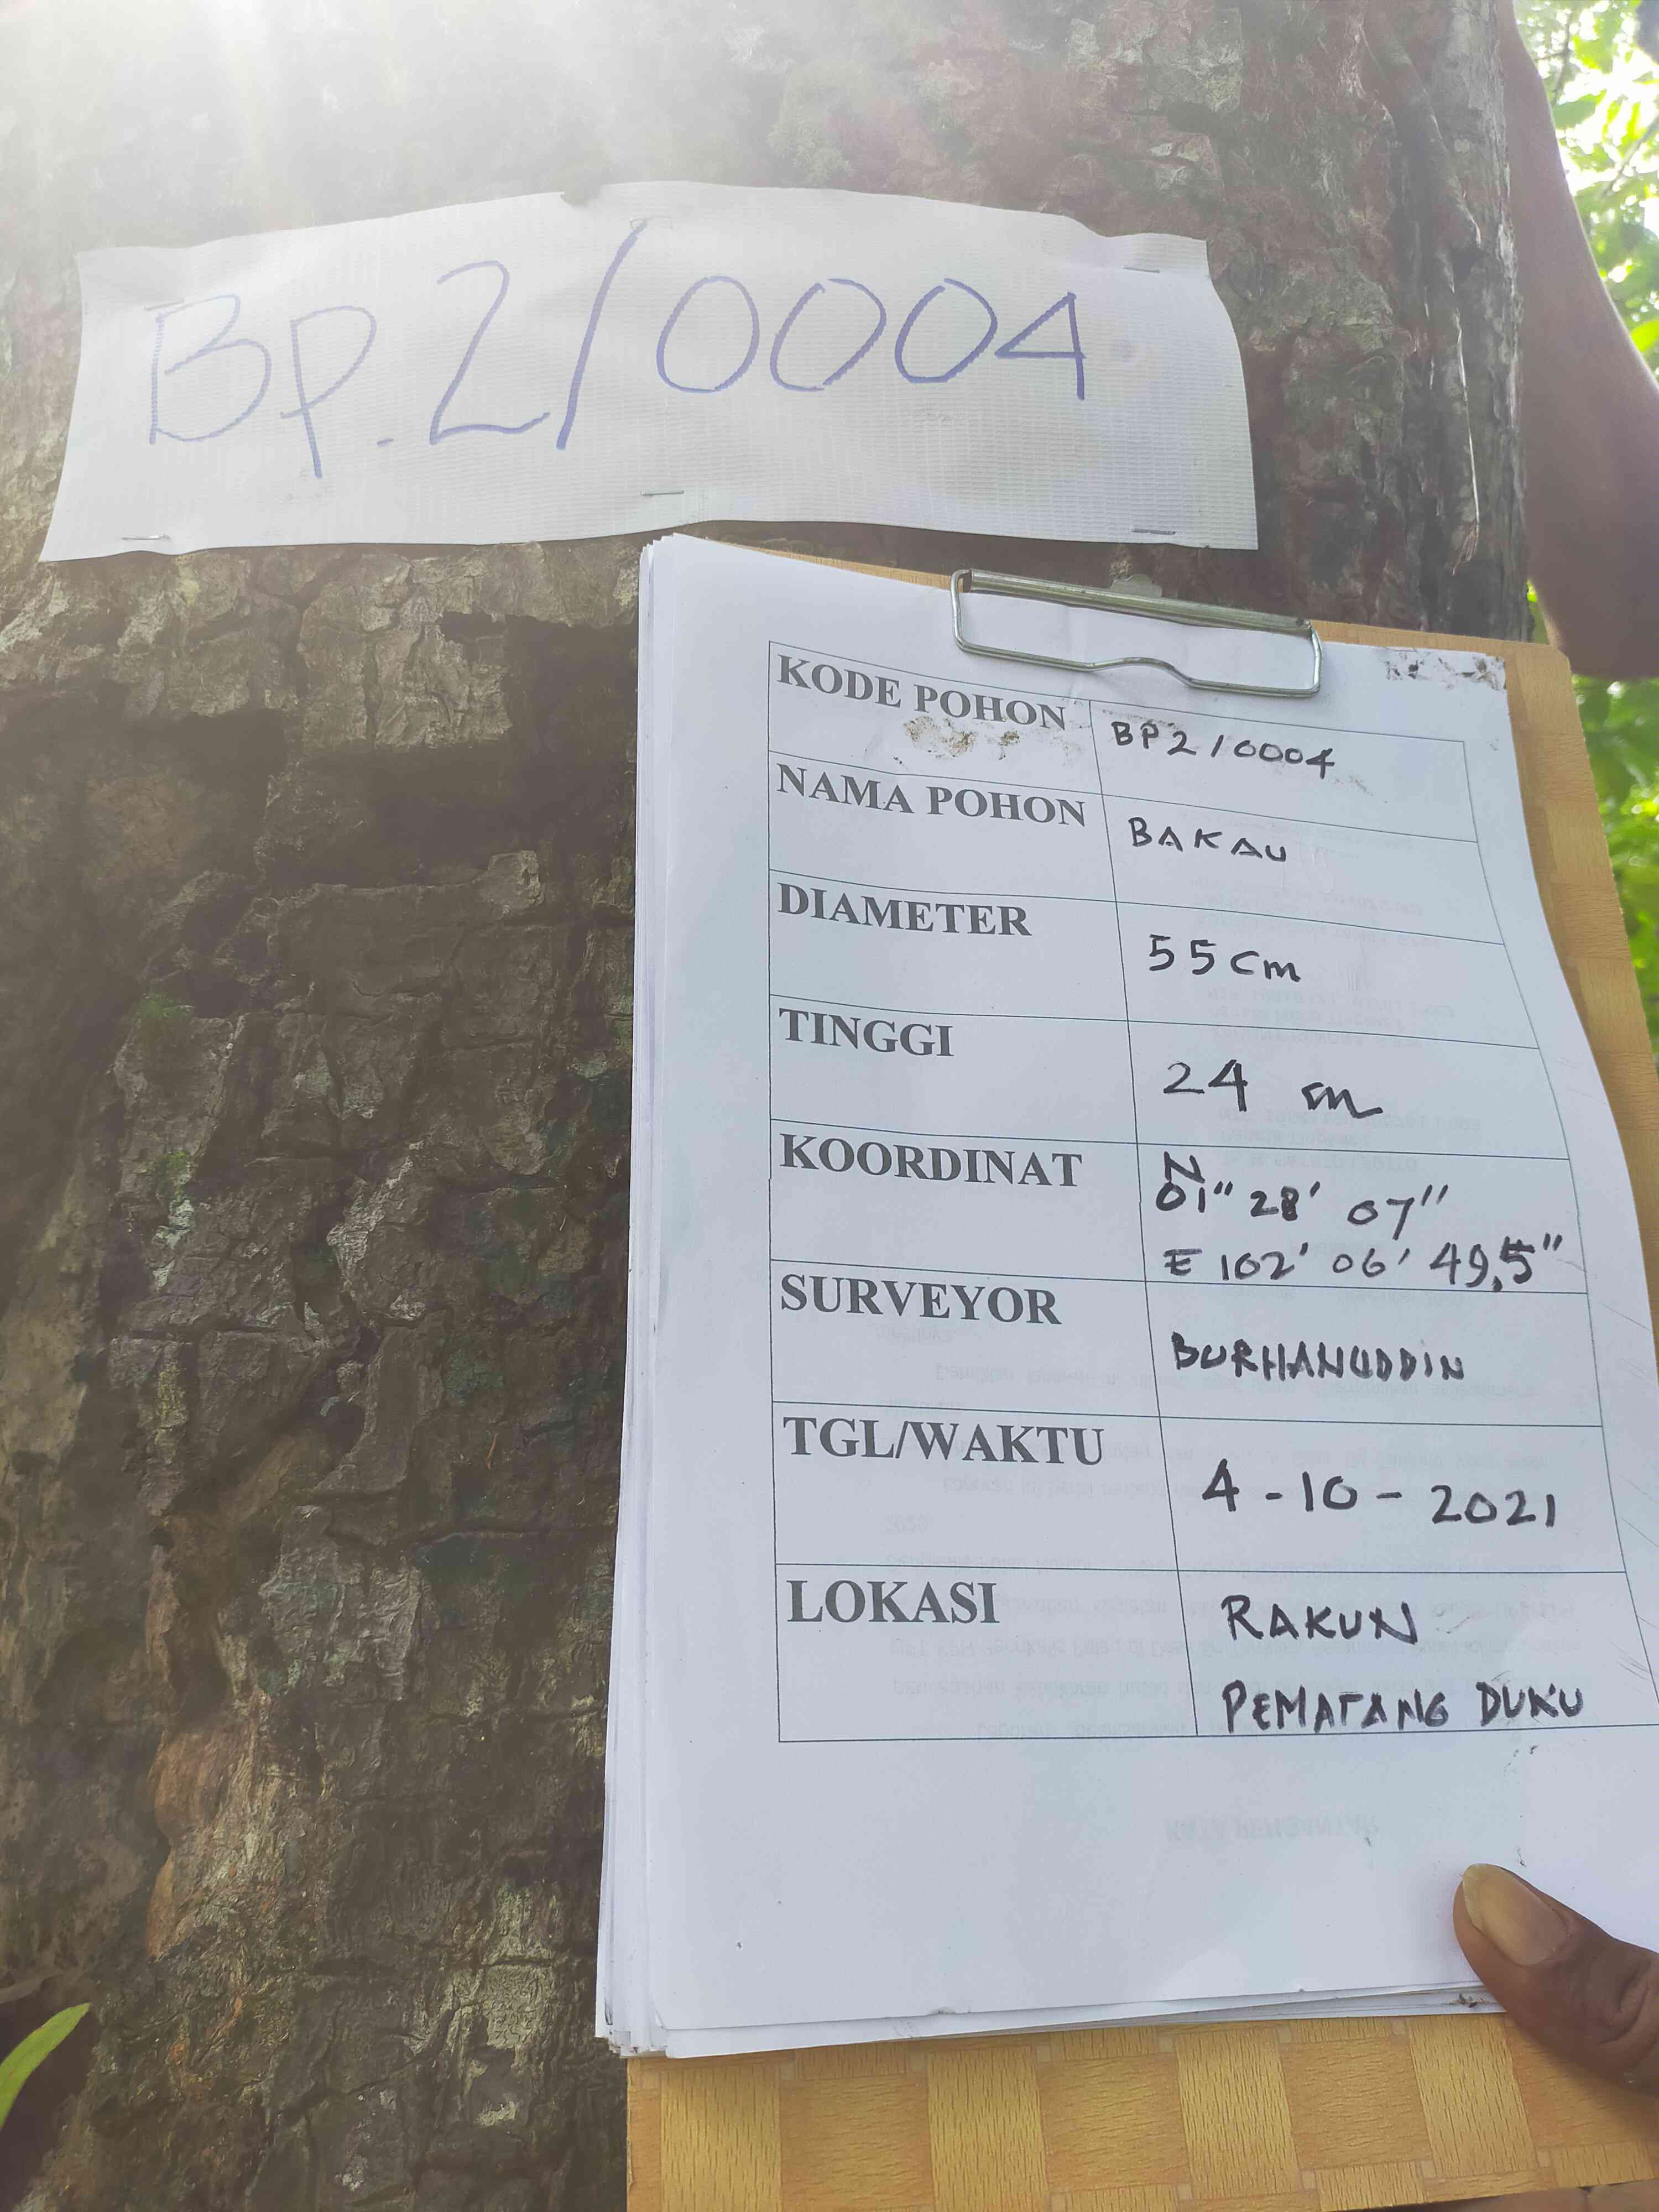 BP.2/0004
KODE POHON BP2/0004
NAMA POHON BAKAU
DIAMETER 55 Cm
TINGGI 24 m
KOORDINAT N
01" 28' 07"
E 102' 06' 49,5"
SURVEYOR BURHANUDDIN
TGL/WAKTU 4-10-2021
LOKASI RAKUN
PEMATANG DUKU